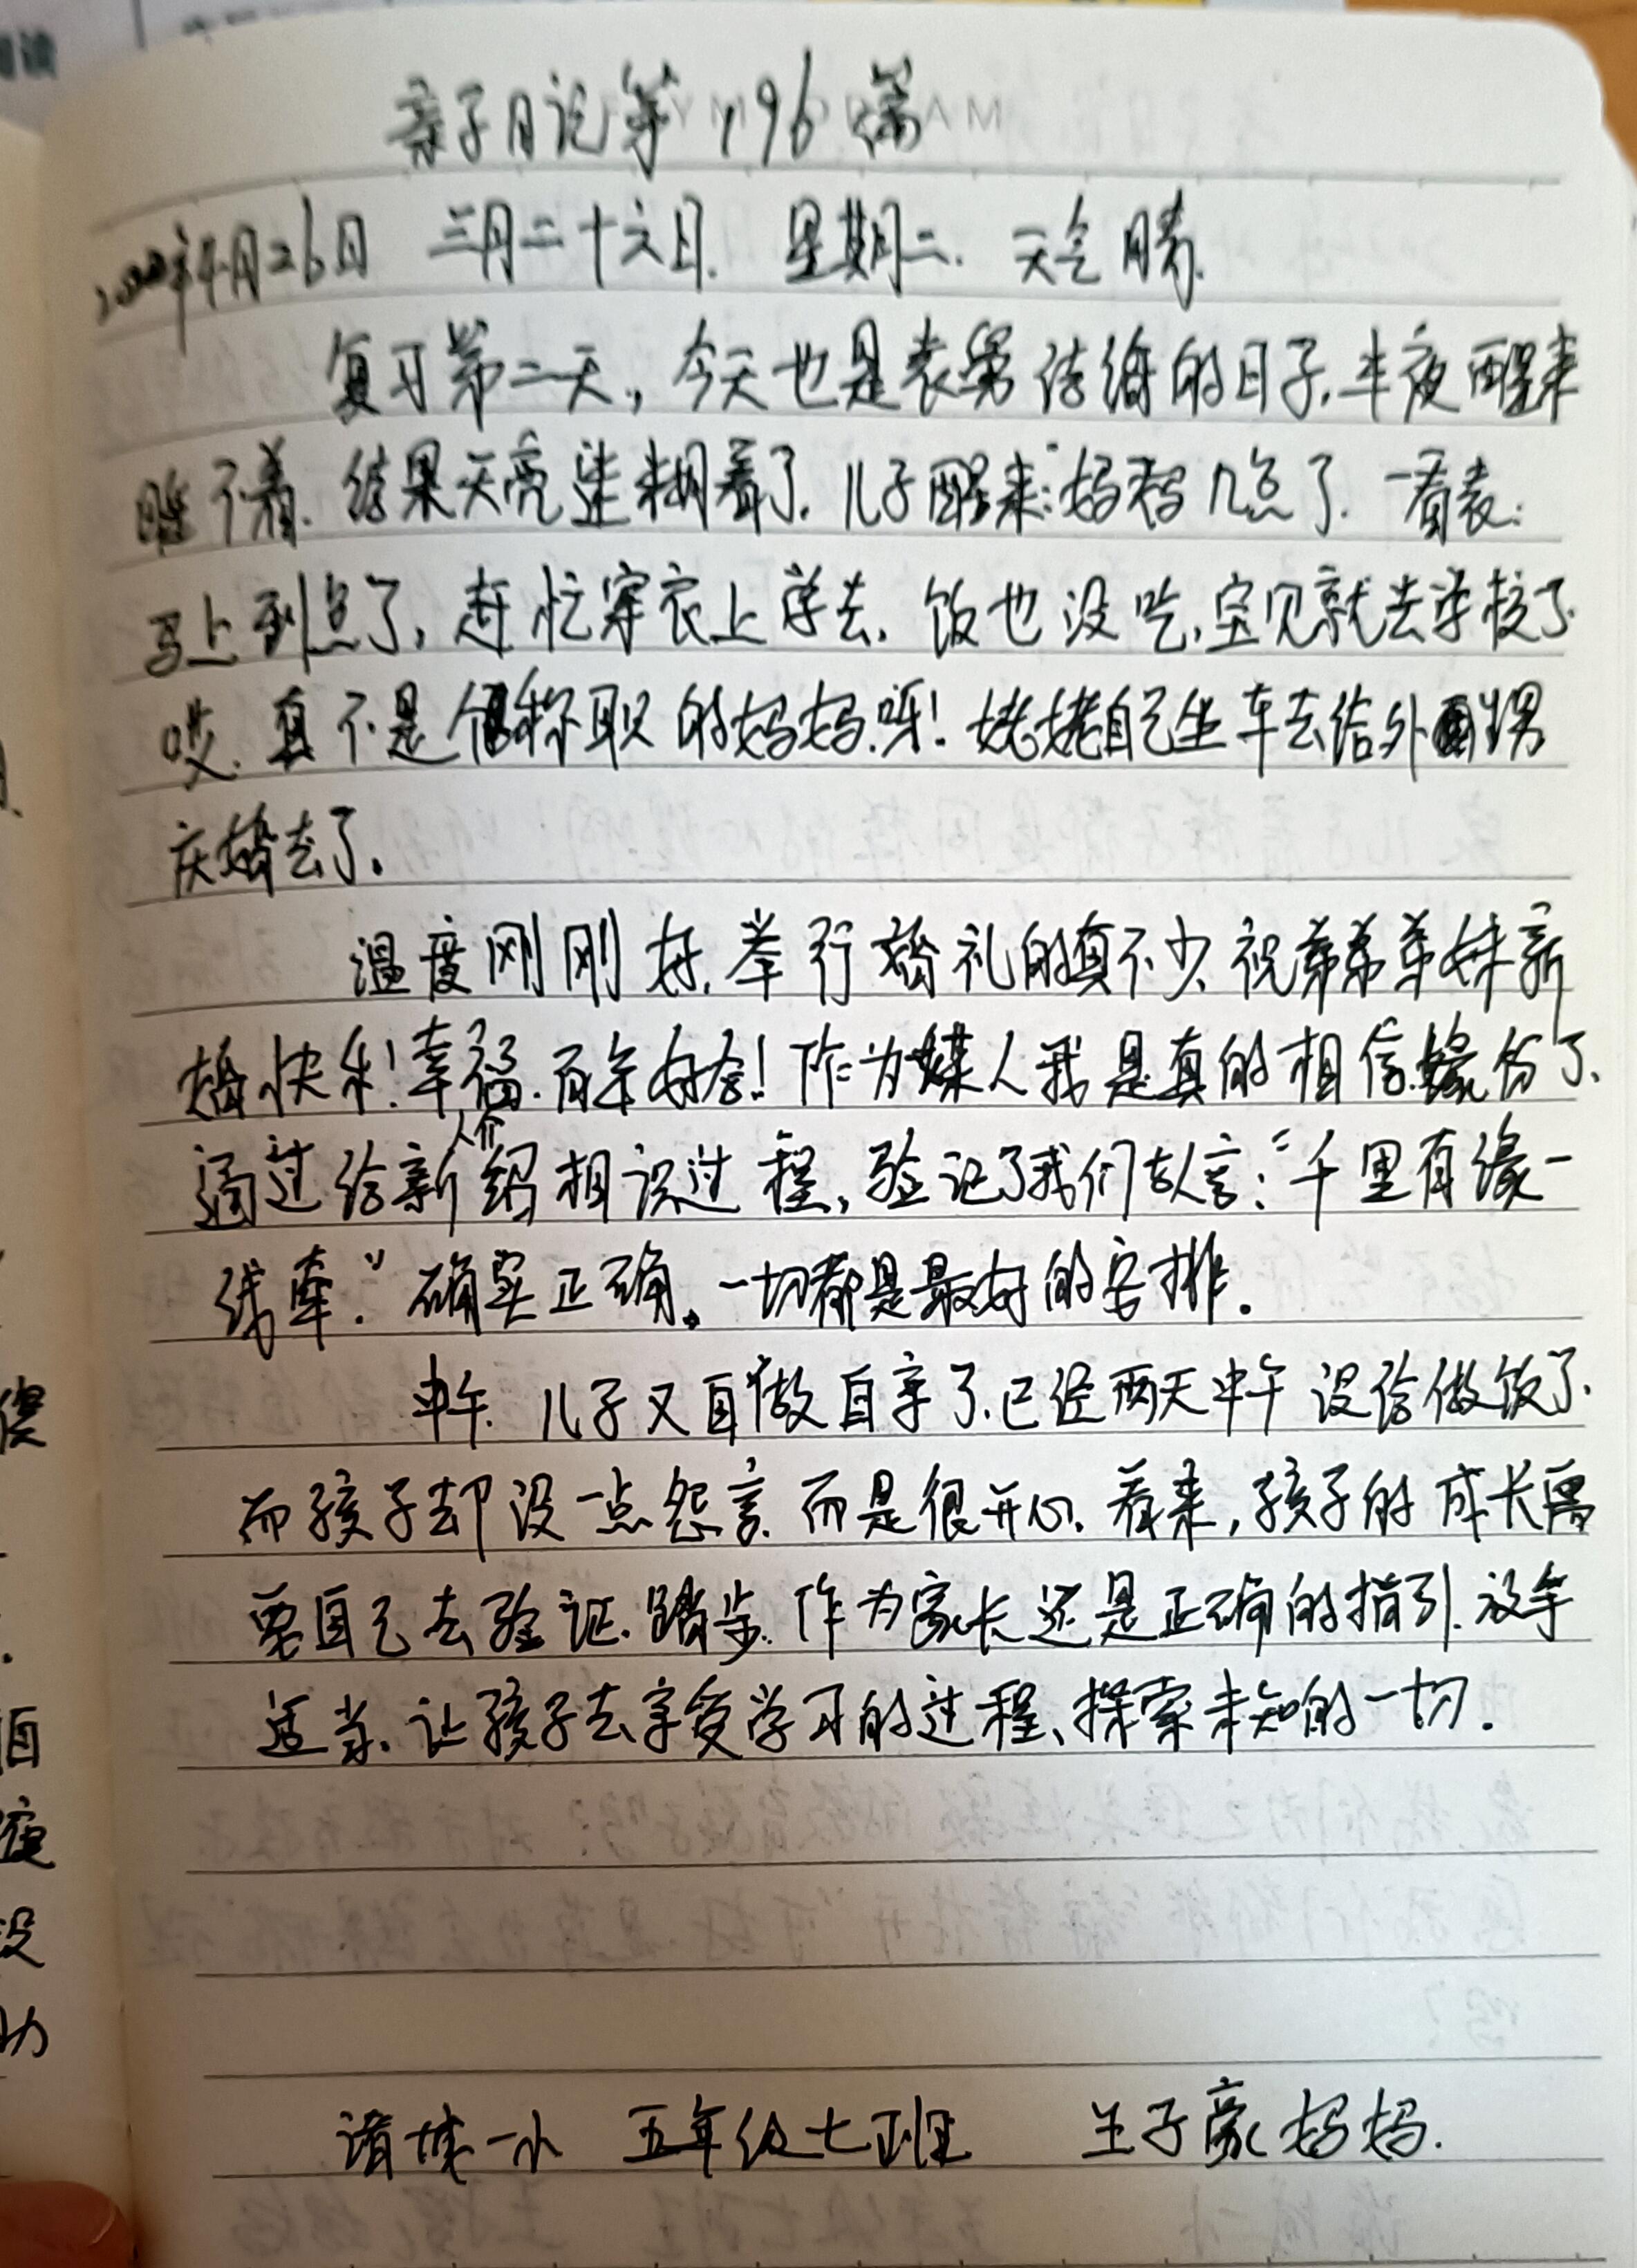 亲子日记第196篇
2022年4月26日 三月二十六日. 星期二. 天气晴.
复习第二天，今天也是表舅结婚的日子.半夜醒来
睡不着.结果天亮迷糊着了.儿子醒来:妈妈几点了.一看表:
马上到点了,赶忙穿衣上学去.饭也没吃,宝贝就去学校了
哎.真不是个称职的妈妈呀!姥姥自己坐车去给外甥
庆婚去了.
温度刚刚好.举行婚礼的真不少.祝弟弟弟妹新
婚快乐!幸福.百年好合!作为媒人我是真的相信缘份了.
通过给新人介绍相识过程,验证了我们古人言:“千里有缘一
线牵.”确实正确。一切都是最好的安排.
中午.儿子又自做自享了.已经两天中午没给做饭了.
而孩子却没一点怨言.而是很开心.看来,孩子的成长需
要自己去验证.踏步.作为家长还是正确的指引.放手
适当.让孩子去享受学习的过程、探索未知的一切.
诸城一小 五年级七班 王子豪妈妈.